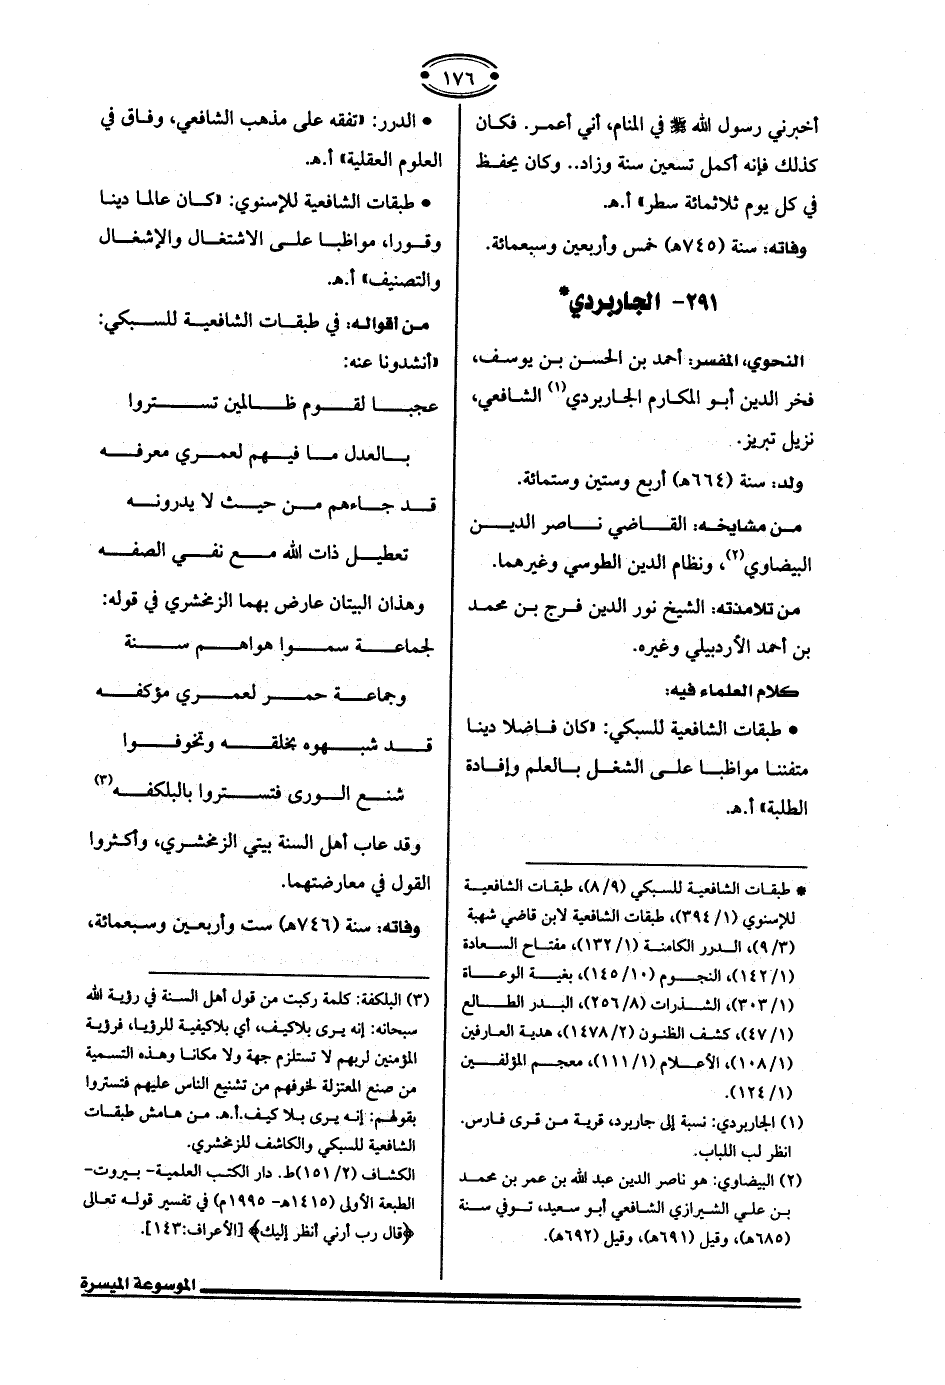 ١٧٦
أخبرني رسول الله ﷺ في المنام، أني أعمر. فكان
كذلك فإنه أكمل تسعين سنة وزاد.. وكان يحفظ
في كل يوم ثلاثمائة سطر» أ.هـ.
وفاته: سنة (٧٤٥هـ) خمس وأربعين وسبعمائة.
٢٩١- الجاربردي*
النحوي، المفسر: أحمد بن الحسن بن يوسف،
فخر الدين أبو المكارم الجاربردي(١) الشافعي،
نزيل تبريز.
ولد: سنة (٦٦٤هـ) أربع وستين وستمائة.
من مشايخه: القاضي ناصر الدين
البيضاوي(٢)، ونظام الدين الطوسي وغيرهما.
من تلامذته: الشيخ نور الدين فرج بن محمد
بن أحمد الأردبيلي وغيره.
كلام العلماء فيه:
• طبقات الشافعية للسبكي: «كان فاضلا دينا
متفننا مواظبا على الشغل بالعلم وإفادة
الطلبة» أ.هـ.
* طبقات الشافعية للسبكي (٨/٩)، طبقات الشافعية
للإسنوي (٣٩٤/١)، طبقات الشافعية لابن قاضي شهبة
(٩/٣)، الدرر الكامنة (١٣٢/١)، مفتاح السعادة
(١٤٢/١)، النجوم (١٤٥/١٠)، بغية الوعاة
(٣٠٣/١)، الشذرات (٢٥٦/٨)، البدر الطالع
(٤٧/١)، كشف الظنون (١٤٧٨/٢)، هدية العارفين
(١٠٨/١)، الأعلام (١١١/١)، معجم المؤلفين
(١٢٤/١).
(١) الجاربردي: نسبة إلى جاربرد، قرية من قرى فارس.
انظر لب اللباب.
(٢) البيضاوي: هو ناصر الدين عبد الله بن عمر بن محمد
بن علي الشيرازي الشافعي أبو سعيد، توفي سنة
(٦٨٥هـ)، وقيل (٦٩١هـ)، وقيل (٦٩٢هـ).
• الدرر: «تفقه على مذهب الشافعي، وفاق في
العلوم العقلية» أ.هـ.
• طبقات الشافعية للإسنوي: «كان عالما دينا
وقورا، مواظبا على الاشتغال والإشغال
والتصنيف» أ.هـ.
من أقواله: في طبقات الشافعية للسبكي:
«أنشدونا عنه:
عجبا لقوم ظالمين تستروا
بالعدل ما فيهم لعمري معرفه
قد جاءهم من حيث لا يدرونه
تعطيل ذات الله مع نفي الصفه
وهذان البيتان عارض بهما الزمخشري في قوله:
لجماعة سموا هواهم سنة
وجماعة حمر لعمري مؤكفه
قد شبهوه بخلقه وتخوفوا
شنع الورى فتستروا بالبلكفه(٣)
وقد عاب أهل السنة بيتي الزمخشري، وأكثروا
القول في معارضتهما.
وفاته: سنة (٧٤٦هـ) ست وأربعين وسبعمائة،
(٣) البلكفة: كلمة ركبت من قول أهل السنة في رؤية الله
سبحانه: إنه يرى بلاكيف، أي بلاكيفية للرؤيا، فرؤية
المؤمنين لربهم لا تستلزم جهة ولا مكانا وهذه التسمية
من صنع المعتزلة لخوفهم من تشنيع الناس عليهم فتستروا
بقولهم: إنه يرى بلا كيف.أ.هـ. من هامش طبقات
الشافعية للسبكي والكاشف للزمخشري.
الكشاف (١٥١/٢)ط. دار الكتب العلمية- بيروت-
الطبعة الأولى (١٤١٥هـ- ١٩٩٥م) في تفسير قوله تعالى
﴿قال رب أرني أنظر إليك﴾ [الأعراف:١٤٣].
الموسوعة الميسرة